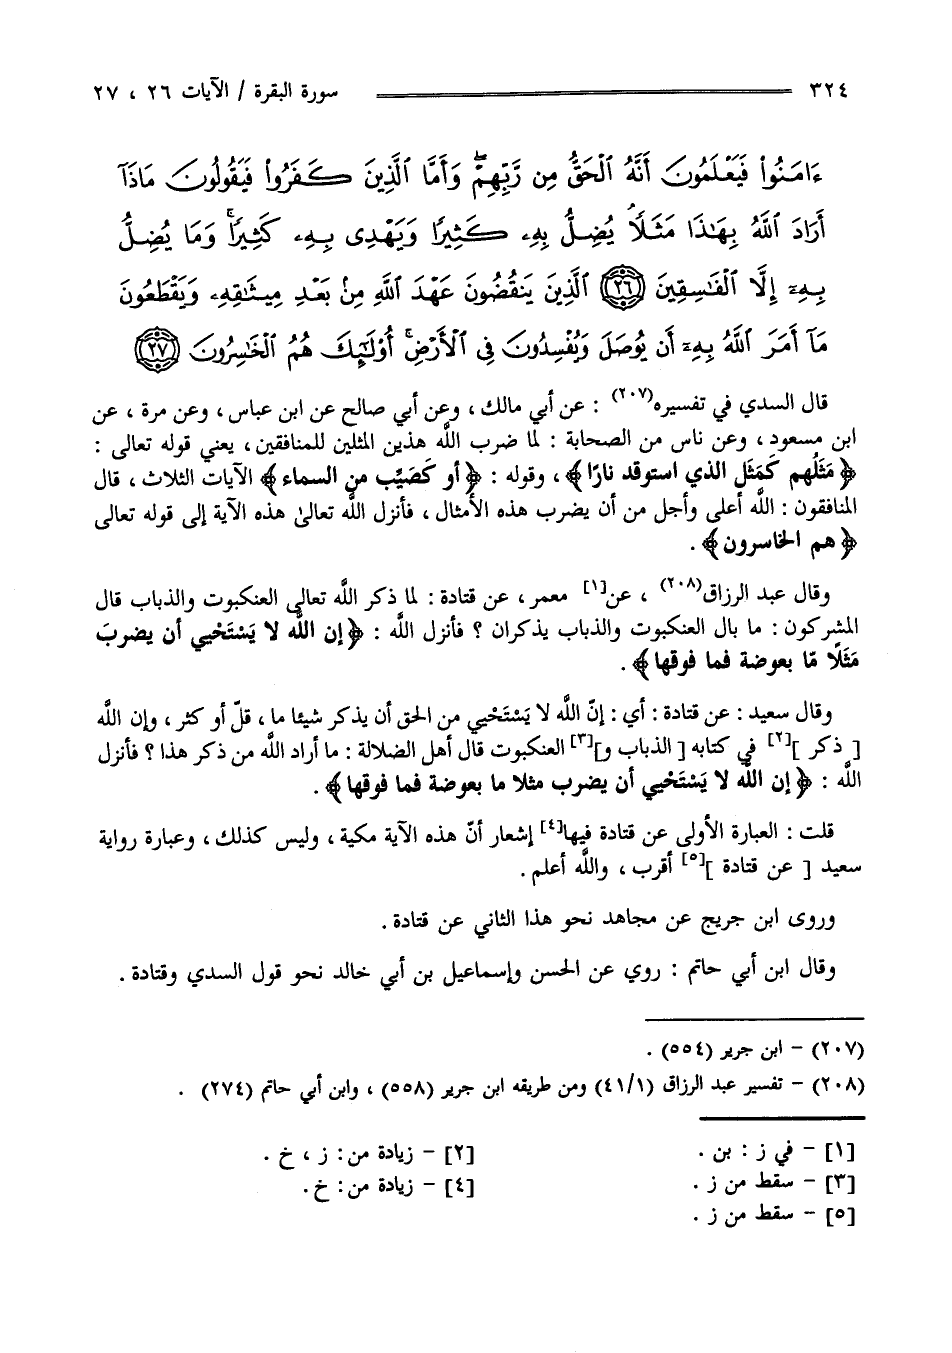 ٣٢٤ سورة البقرة / الآيات ٢٦ ، ٢٧
ءَامَنُوا۟ فَيَعْلَمُونَ أَنَّهُ ٱلْحَقُّ مِن رَّبِّهِمْ ۖ وَأَمَّا ٱلَّذِينَ كَفَرُوا۟ فَيَقُولُونَ مَاذَآ
أَرَادَ ٱللَّهُ بِهَـٰذَا مَثَلًا ۘ يُضِلُّ بِهِۦ كَثِيرًا وَيَهْدِى بِهِۦ كَثِيرًا ۚ وَمَا يُضِلُّ
بِهِۦٓ إِلَّا ٱلْفَـٰسِقِينَ ﴿٢٦﴾ ٱلَّذِينَ يَنقُضُونَ عَهْدَ ٱللَّهِ مِنۢ بَعْدِ مِيثَـٰقِهِۦ وَيَقْطَعُونَ
مَآ أَمَرَ ٱللَّهُ بِهِۦٓ أَن يُوصَلَ وَيُفْسِدُونَ فِى ٱلْأَرْضِ ۚ أُو۟لَـٰٓئِكَ هُمُ ٱلْخَـٰسِرُونَ ﴿٢٧﴾
قال السدي في تفسيره(٢٠٧) : عن أبي مالك ، وعن أبي صالح عن ابن عباس ، وعن مرة ، عن
ابن مسعود ، وعن ناس من الصحابة : لما ضرب اللَّه هذين المثلين للمنافقين ، يعني قوله تعالى :
﴿مَثَلُهم كَمَثَل الذي استوقد نارًا﴾ ، وقوله : ﴿أو كَصَيِّب من السماء﴾ الآيات الثلاث ، قال
المنافقون : اللَّه أعلى وأجل من أن يضرب هذه الأمثال ، فأنزل اللَّه تعالىٰ هذه الآية إلى قوله تعالى
﴿هم الخاسرون﴾ .
وقال عبد الرزاق(٢٠٨) ، عن[١] معمر ، عن قتادة : لما ذكر اللَّه تعالى العنكبوت والذباب قال
المشركون : ما بال العنكبوت والذباب يذكران ؟ فأنزل اللَّه : ﴿إن اللَّه لا يَسْتَحْيي أن يضربَ
مَثَلًا مّا بعوضة فما فوقها﴾ .
وقال سعيد : عن قتادة : أي : إنّ اللَّه لا يَسْتَحْيي من الحق أن يذكر شيئا ما ، قلّ أو كثر ، وإن اللَّه
[ ذكر ][٢] في كتابه [ الذباب و][٣] العنكبوت قال أهل الضلالة : ما أراد اللَّه من ذكر هذا ؟ فأنزل
اللَّه : ﴿إن اللَّه لا يَسْتَحْيي أن يضرب مثلا ما بعوضة فما فوقها﴾ .
قلت : العبارة الأولى عن قتادة فيها[٤] إشعار أنّ هذه الآية مكية ، وليس كذلك ، وعبارة رواية
سعيد [ عن قتادة ][٥] أقرب ، واللَّه أعلم .
وروى ابن جريج عن مجاهد نحو هذا الثاني عن قتادة .
وقال ابن أبي حاتم : روي عن الحسن وإسماعيل بن أبي خالد نحو قول السدي وقتادة .
(٢٠٧) - ابن جرير (٥٥٤) .
(٢٠٨) - تفسير عبد الرزاق (٤١/١) ومن طريقه ابن جرير (٥٥٨) ، وابن أبي حاتم (٢٧٤) .
[١] - في ز : بن . [٢] - زيادة من : ز ، خ .
[٣] - سقط من ز . [٤] - زيادة من : خ .
[٥] - سقط من ز .